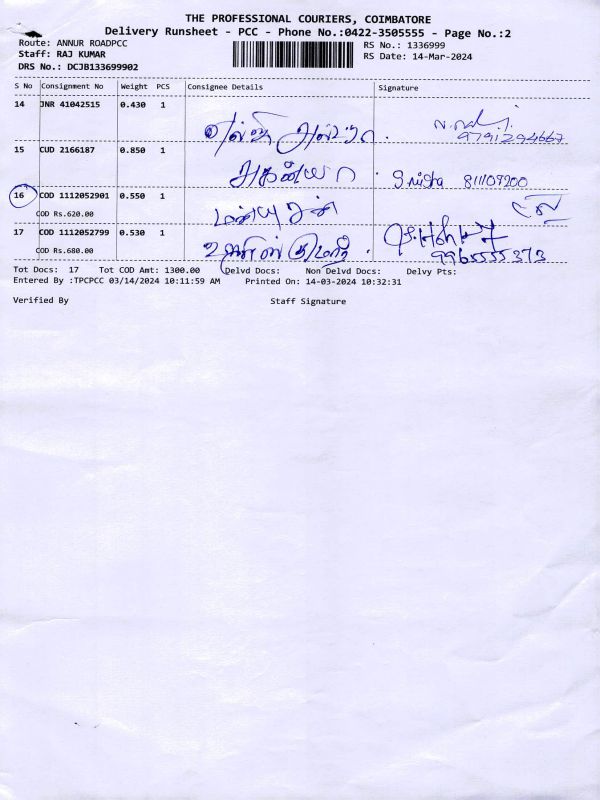 THE PROFESSIONAL COURIERS, COIMBATORE
Delivery Runsheet - PCC - Phone No.:0422-3505555 - Page No.:2
Route: ANNUR ROADPCC
RS No.: 1336999
Staff: RAJ KUMAR
RS Date: 14-Mar-2024
DRS No.: DCJB133699902
S No Consignment No Weight PCS Consignee Details Signature
14 JNR 41042515 0.430 1
9791294667
15 CUD 2166187 0.850 1
16 COD 1112052901 0.550 1
COD Rs.620.00
17 COD 1112052799 0.530 1
COD Rs.680.00
9965555373
Tot Docs: 17 Tot COD Amt: 1300.00 Delvd Docs: Non Delvd Docs: Delvy Pts:
Entered By :TPCPCC 03/14/2024 10:11:59 AM Printed On: 14-03-2024 10:32:31
Verified By Staff Signature